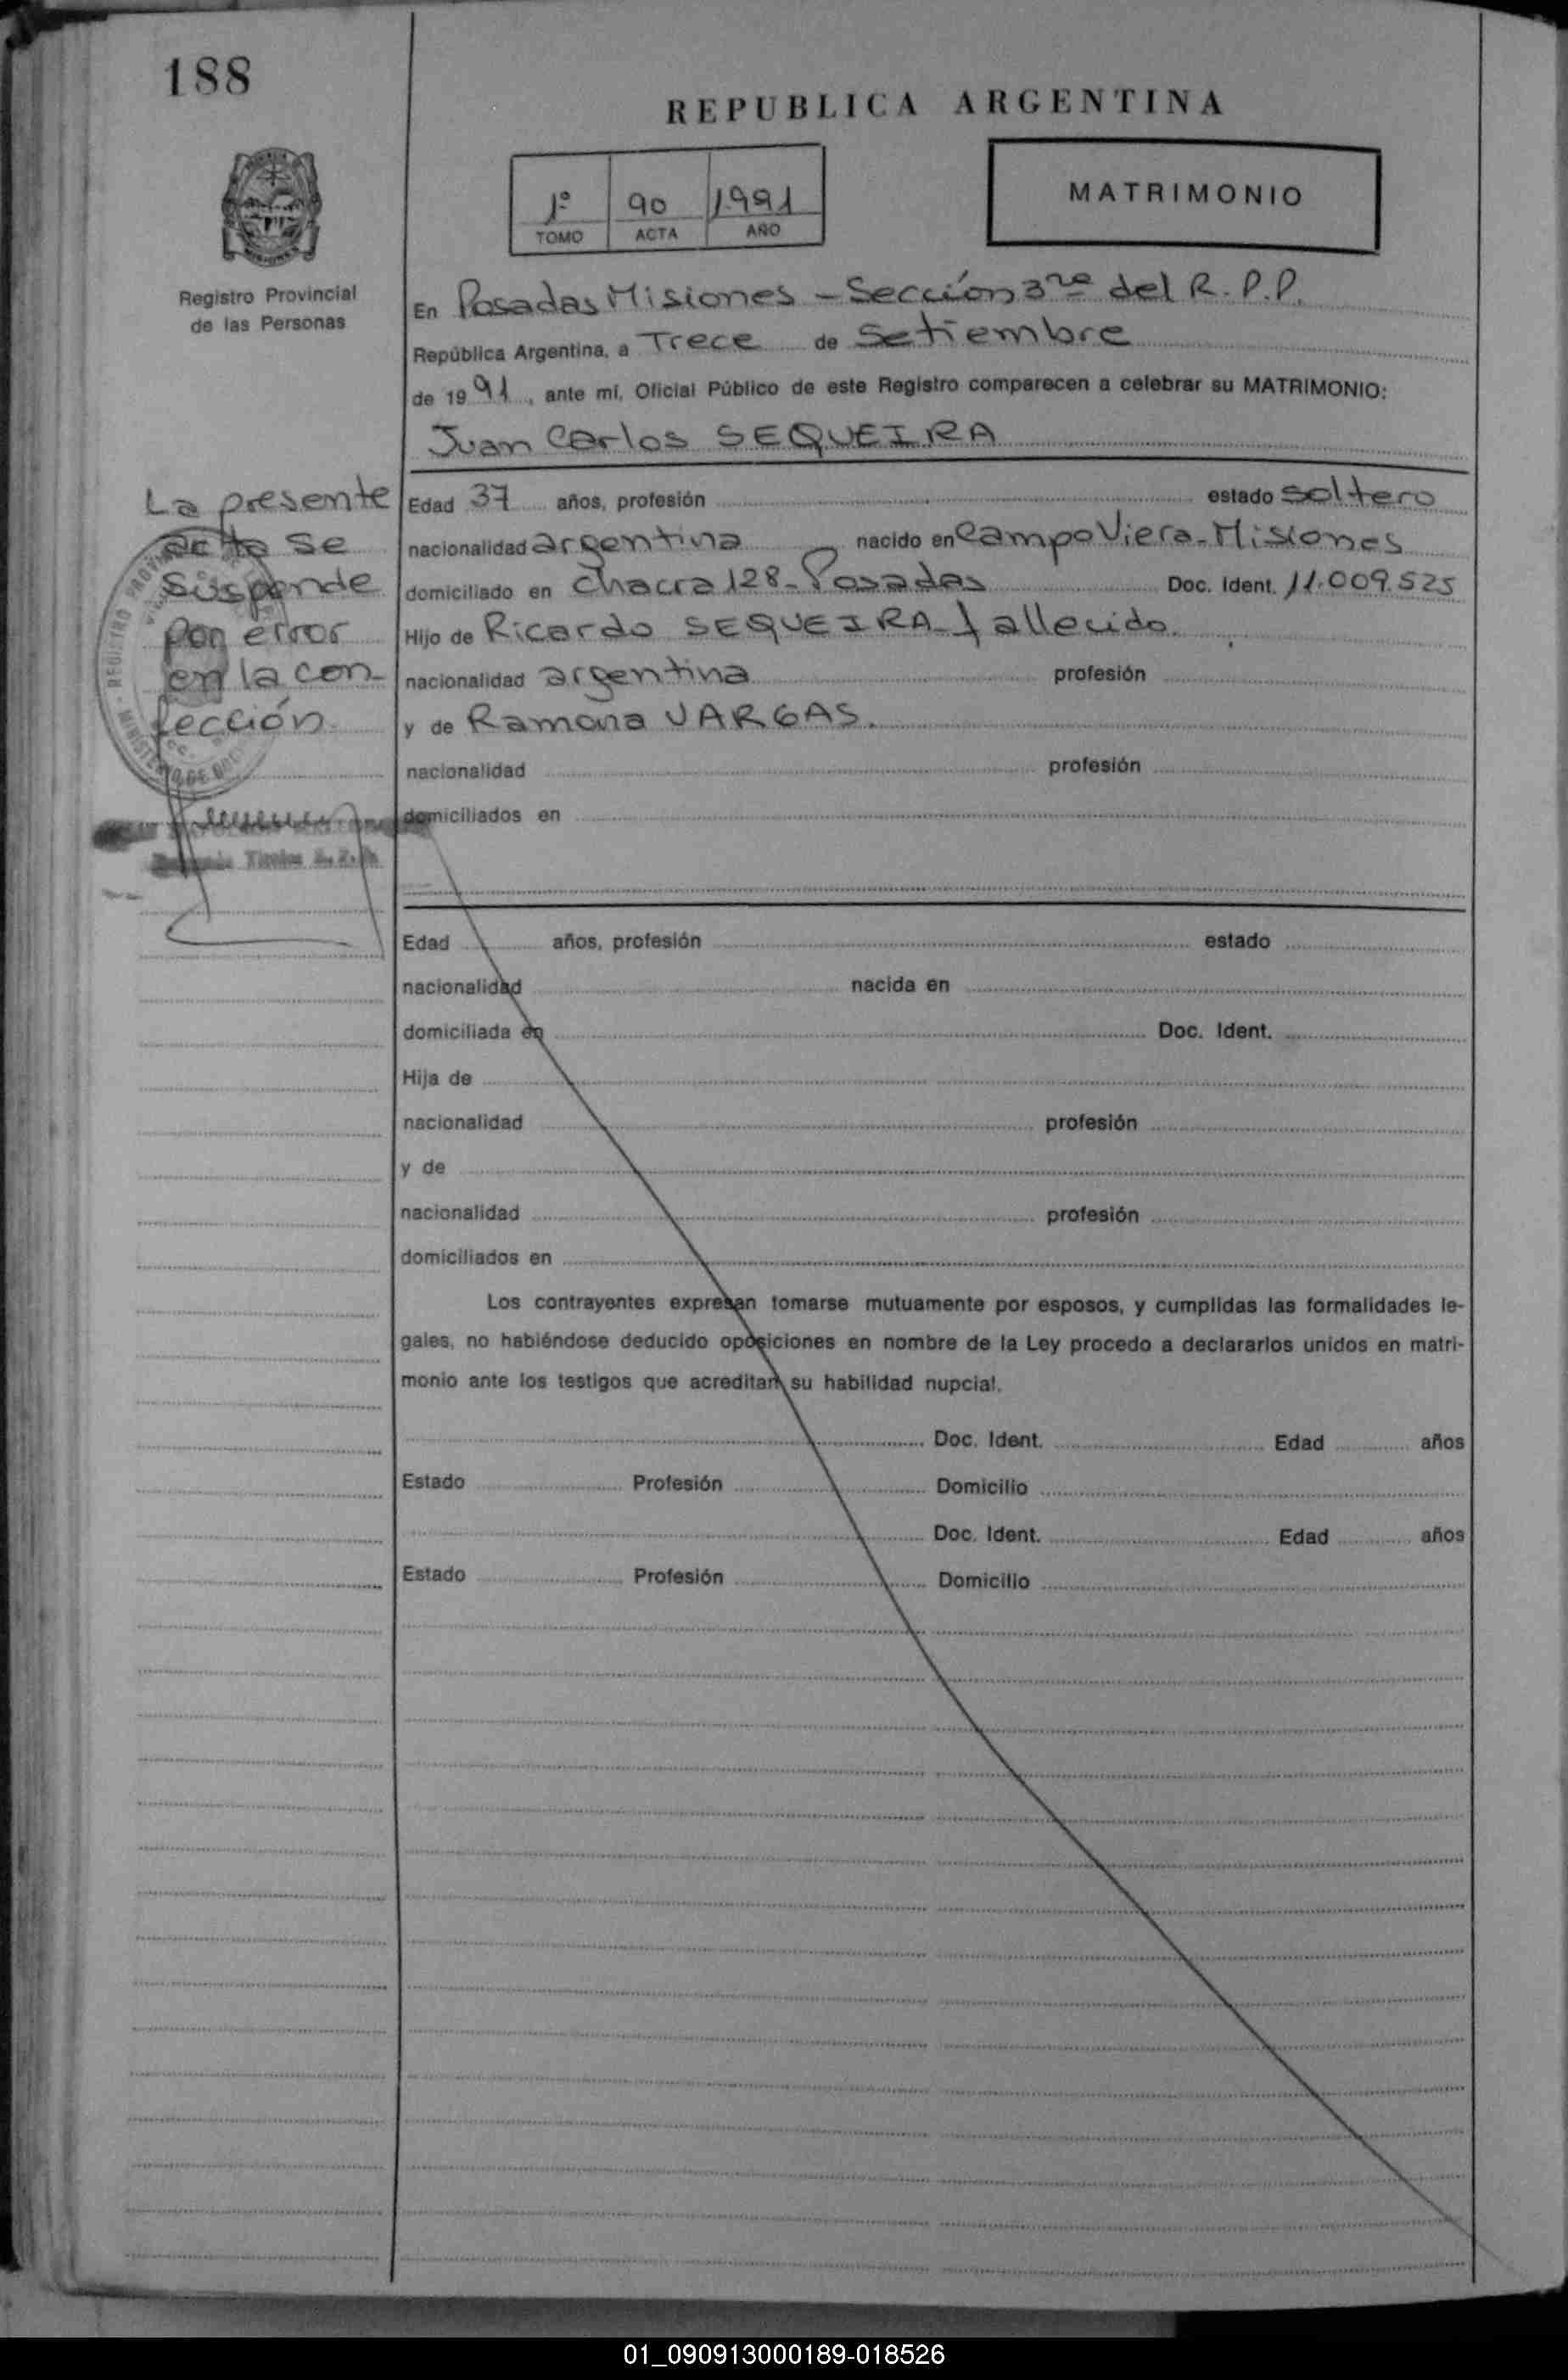 188
REPUBLICA ARGENTINA
1º 90 1991
TOMO ACTA AÑO
MATRIMONIO
Registro Provincial
de las Personas
En Posadas Misiones - Sección 3ra del R.P.P.
República Argentina, a Trece de Setiembre
de 1991, ante mí, Oficial Público de este Registro comparecen a celebrar su MATRIMONIO:
Juan Carlos SEQUEIRA
La presente
acta se
suspende
por error
en la con-
fección
Edad 37 años, profesión estado soltero
nacionalidad argentina nacido en Campo Viera - Misiones
domiciliado en Chacra 128 - Posadas Doc. Ident. 11.009.525
Hijo de Ricardo SEQUEIRA - fallecido.
nacionalidad argentina profesión
y de Ramona VARGAS.
nacionalidad profesión
domiciliados en
Edad años, profesión estado
nacionalidad nacida en
domiciliada en Doc. Ident.
Hija de
nacionalidad profesión
y de
nacionalidad profesión
domiciliados en
Los contrayentes expresan tomarse mutuamente por esposos, y cumplidas las formalidades le-
gales, no habiéndose deducido oposiciones en nombre de la Ley procedo a declararlos unidos en matri-
monio ante los testigos que acreditan su habilidad nupcial.
Doc. Ident. Edad años
Estado Profesión Domicilio
Doc. Ident. Edad años
Estado Profesión Domicilio
01_090913000189-018526